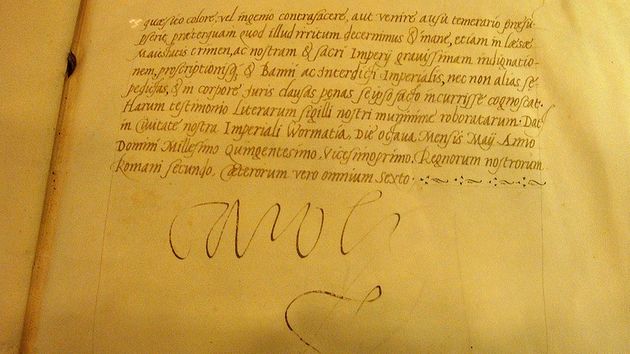 quæsito colore, vel ingenio contrafacere, aut venire ausu temerario præsu-
pserit, præterquam quod illud irritum decernimus & inane, etiam in læsæ
Maiestatis crimen, ac nostram & sacri Imperij grauissimam indignatio-
nem, proscriptionisq, & Banni ac Interdicti Imperialis, nec non alias se-
pedictas, & in corpore Juris clausas penas se ipso facto incurrisse cognoscat.
Harum testimonio Literarum sigilli nostri munimine roboratarum. Dat.
in Ciuitate nostra Imperiali Wormatia, Die octaua Mensis Maij Anno
Domini Millesimo Quingentesimo Vicesimoprimo. Regnorum nostrorum
Romani secundo, Cæterorum vero omnium Sexto.
Carol